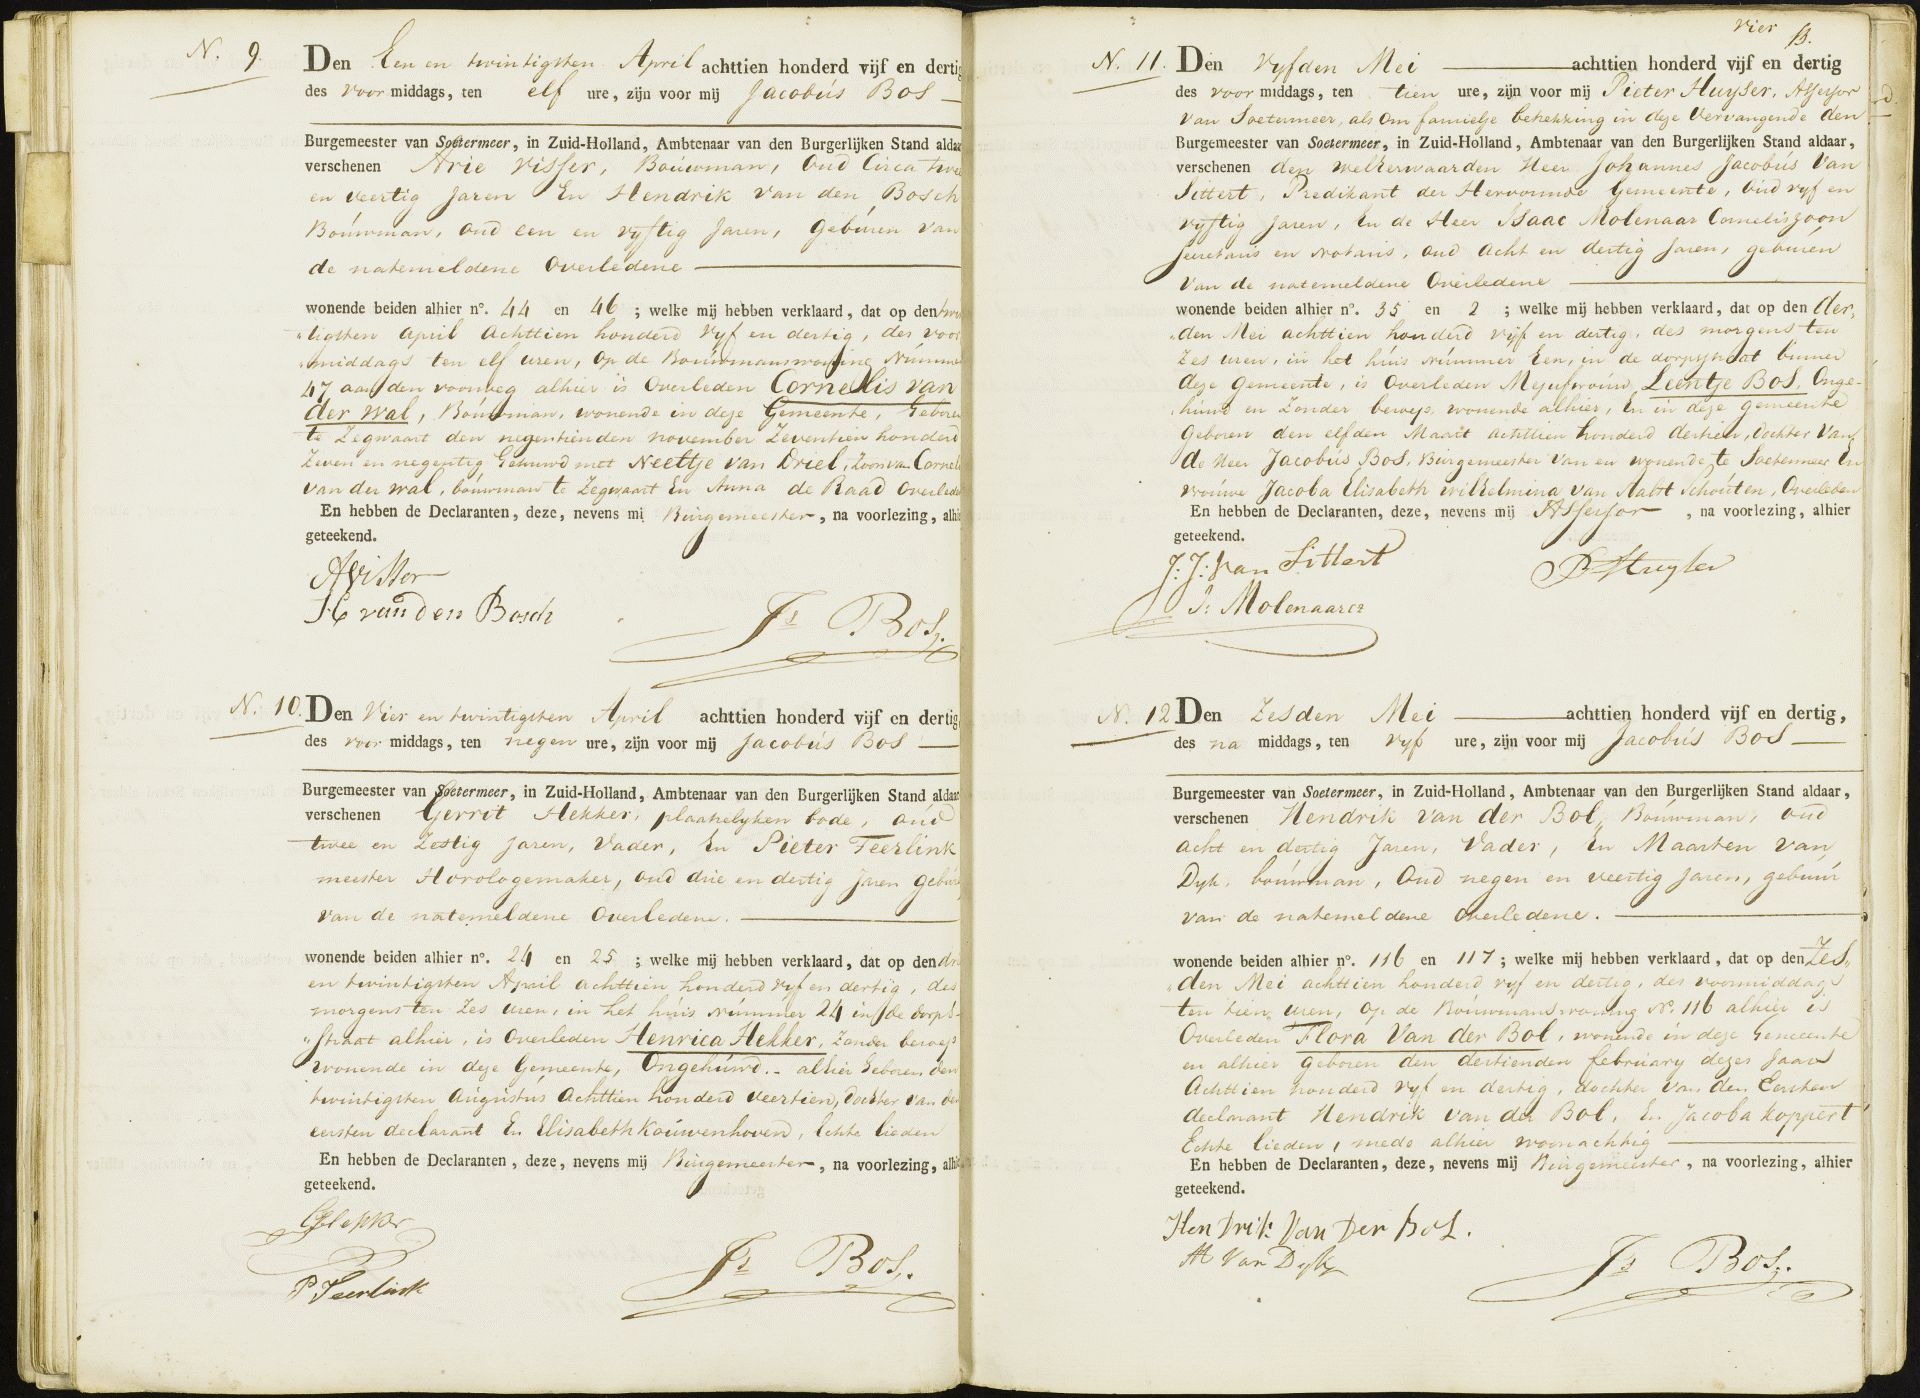 N. 9.
Den Een en twintigsten April achttien honderd vijf en dertig
des voor middags, ten elf ure, zijn voor mij Jacobus Bos
Burgemeester van Soetermeer, in Zuid-Holland, Ambtenaar van den Burgerlijken Stand aldaar
verschenen Arie Visser, Bouwman, oud Circa twee
en veertig Jaren En Hendrik van den Bosch
Bouwman, oud een en vyftig Jaren, gebuuren van
de natemeldene Overledene
wonende beiden alhier n°. 44 en 46 ; welke mij hebben verklaard, dat op den twin
tigsten April achttien honderd vyf en dertig, des voor
middags ten elf uren, op de Bouwmanswoning Nummer
47 aan den voorweg alhier is Overleden Cornelis van
der Wal, Bouwman, wonende in deze Gemeente, Geboren
te Zegwaart den negentienden november Zeventien honderd
Zeven en negentig Gehuwd met Neeltje van Driel, Zoon van Cornelis
van der Wal, bouwman te Zegwaart En Anna de Raad Overleden
En hebben de Declaranten, deze, nevens mij Burgemeester, na voorlezing, alhier
geteekend.
A Visser
H van den Bosch
Js Bos.
N. 10.
Den Vier en twintigsten April achttien honderd vijf en dertig,
des voor middags, ten negen ure, zijn voor mij Jacobus Bos
Burgemeester van Soetermeer, in Zuid-Holland, Ambtenaar van den Burgerlijken Stand aldaar
verschenen Gerrit Hekker, plaatselyken bode, oud
twee en Zestig Jaren, Vader, En Pieter Teerlink
meester Horologemaker, oud drie en dertig Jaren gebuur
van de natemeldene Overledene.
wonende beiden alhier n°. 24 en 25 ; welke mij hebben verklaard, dat op den drie
en twintigsten April achttien honderd vyf en dertig, des
morgens ten Zes uren, in het huis Nummer 24 in de dorps-
straat alhier, is Overleden Henrica Hekker, Zonder beroep
wonende in deze Gemeente, Ongehuwd.- alhier Geboren den
twintigsten Augustus Achttien honderd veertien, Dochter van den
eersten declarant En Elisabeth Kouwenhoven, Echte lieden
En hebben de Declaranten, deze, nevens mij Burgemeester, na voorlezing, alhier
geteekend.
G Hekker
P Teerlink
Js Bos.
vier
N. 11.
Den Vyfden Mei achttien honderd vijf en dertig
des voor middags, ten tien ure, zijn voor mij Pieter Huyser, Assessor
van Soetermeer, als Om famielje betrekking in deze vervangende den
Burgemeester van Soetermeer, in Zuid-Holland, Ambtenaar van den Burgerlijken Stand aldaar,
verschenen den welEerwaarden Heer Johannes Jacobus Van
Sittert, Predikant der Hervormde Gemeente, oud vyf en
vyftig Jaren, En de Heer Isaac Molenaar Corneliszoon
Secretaris en Notaris, oud acht en dertig Jaren, geburen
Van de natemeldene Overledene
wonende beiden alhier n°. 35 en 2 ; welke mij hebben verklaard, dat op den der
den Mei achttien honderd vijf en dertig, des morgens ten
Zes uren, in het huis Nummer Een, in de dorpsstraat binnen
deze gemeente, is Overleden Mejufvrouw Leentje Bos, Onge-
huwd en Zonder beroep, wonende alhier, En in deze gemeente
Geboren den elfden Maart achttien honderd dertien, dochter Van
de Heer Jacobus Bos, Burgemeester van en wonende te Soetermeer En
vrouwe Jacoba Elisabeth Wilhelmina van Aalst Schouten, Overleden
En hebben de Declaranten, deze, nevens mij Assessor, na voorlezing, alhier
geteekend.
J: J: Van Sittert
P Huyser
I: Molenaar Cz
N. 12
Den Zesden Mei achttien honderd vijf en dertig,
des na middags, ten vyf ure, zijn voor mij Jacobus Bos
Burgemeester van Soetermeer, in Zuid-Holland, Ambtenaar van den Burgerlijken Stand aldaar,
verschenen Hendrik van der Bol, Bouwman, oud
acht en dertig Jaren, Vader, En Maarten van
Dyk, bouwman, Oud negen en veertig Jaren, gebuur
van de natemeldene overledene.
wonende beiden alhier n°. 116 en 117 ; welke mij hebben verklaard, dat op den Zes
den Mei achttien honderd vyf en dertig, des voormiddags
ten tien uren, op de Bouwmanswoning N°. 116 alhier is
Overleden Flora Van der Bol, wonende in deze Gemeente
en alhier geboren den dertienden february dezes Jaars
Achttien honderd vyf en dertig, dochter van den Eersten
declarant Hendrik van der Bol, En Jacoba Koppert
Echte lieden, mede alhier woonachtig
En hebben de Declaranten, deze, nevens mij Burgemeester, na voorlezing, alhier
geteekend.
Hendrik Van Der Bol.
M Van Dyk
Js Bos.